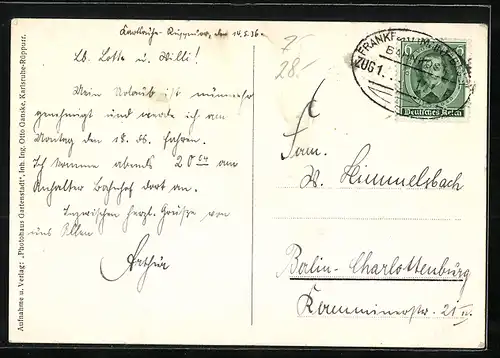 Karlsruhe-Rüppurr, den 14.5.36.
Lb. Lotte u. Willi!
Mein Urlaub ist nunmehr
genehmigt und werde ich am
Montag den 18. ds. fahren.
Ich komme abends 20 54 am
Anhalter Bahnhof dort an.
Inzwischen herzl. Grüße von
uns Allen
Arthur
Aufnahme u. Verlag: „Photohaus Gartenstadt", Inh. Ing. Otto Ganske, Karlsruhe-Rüppurr.
7
28.-
FRANKF
BAHNPOST
ZUG 1
6
Deutsches Reich
Fam.
W. Himmelsbach
Berlin-Charlottenburg
21 II.